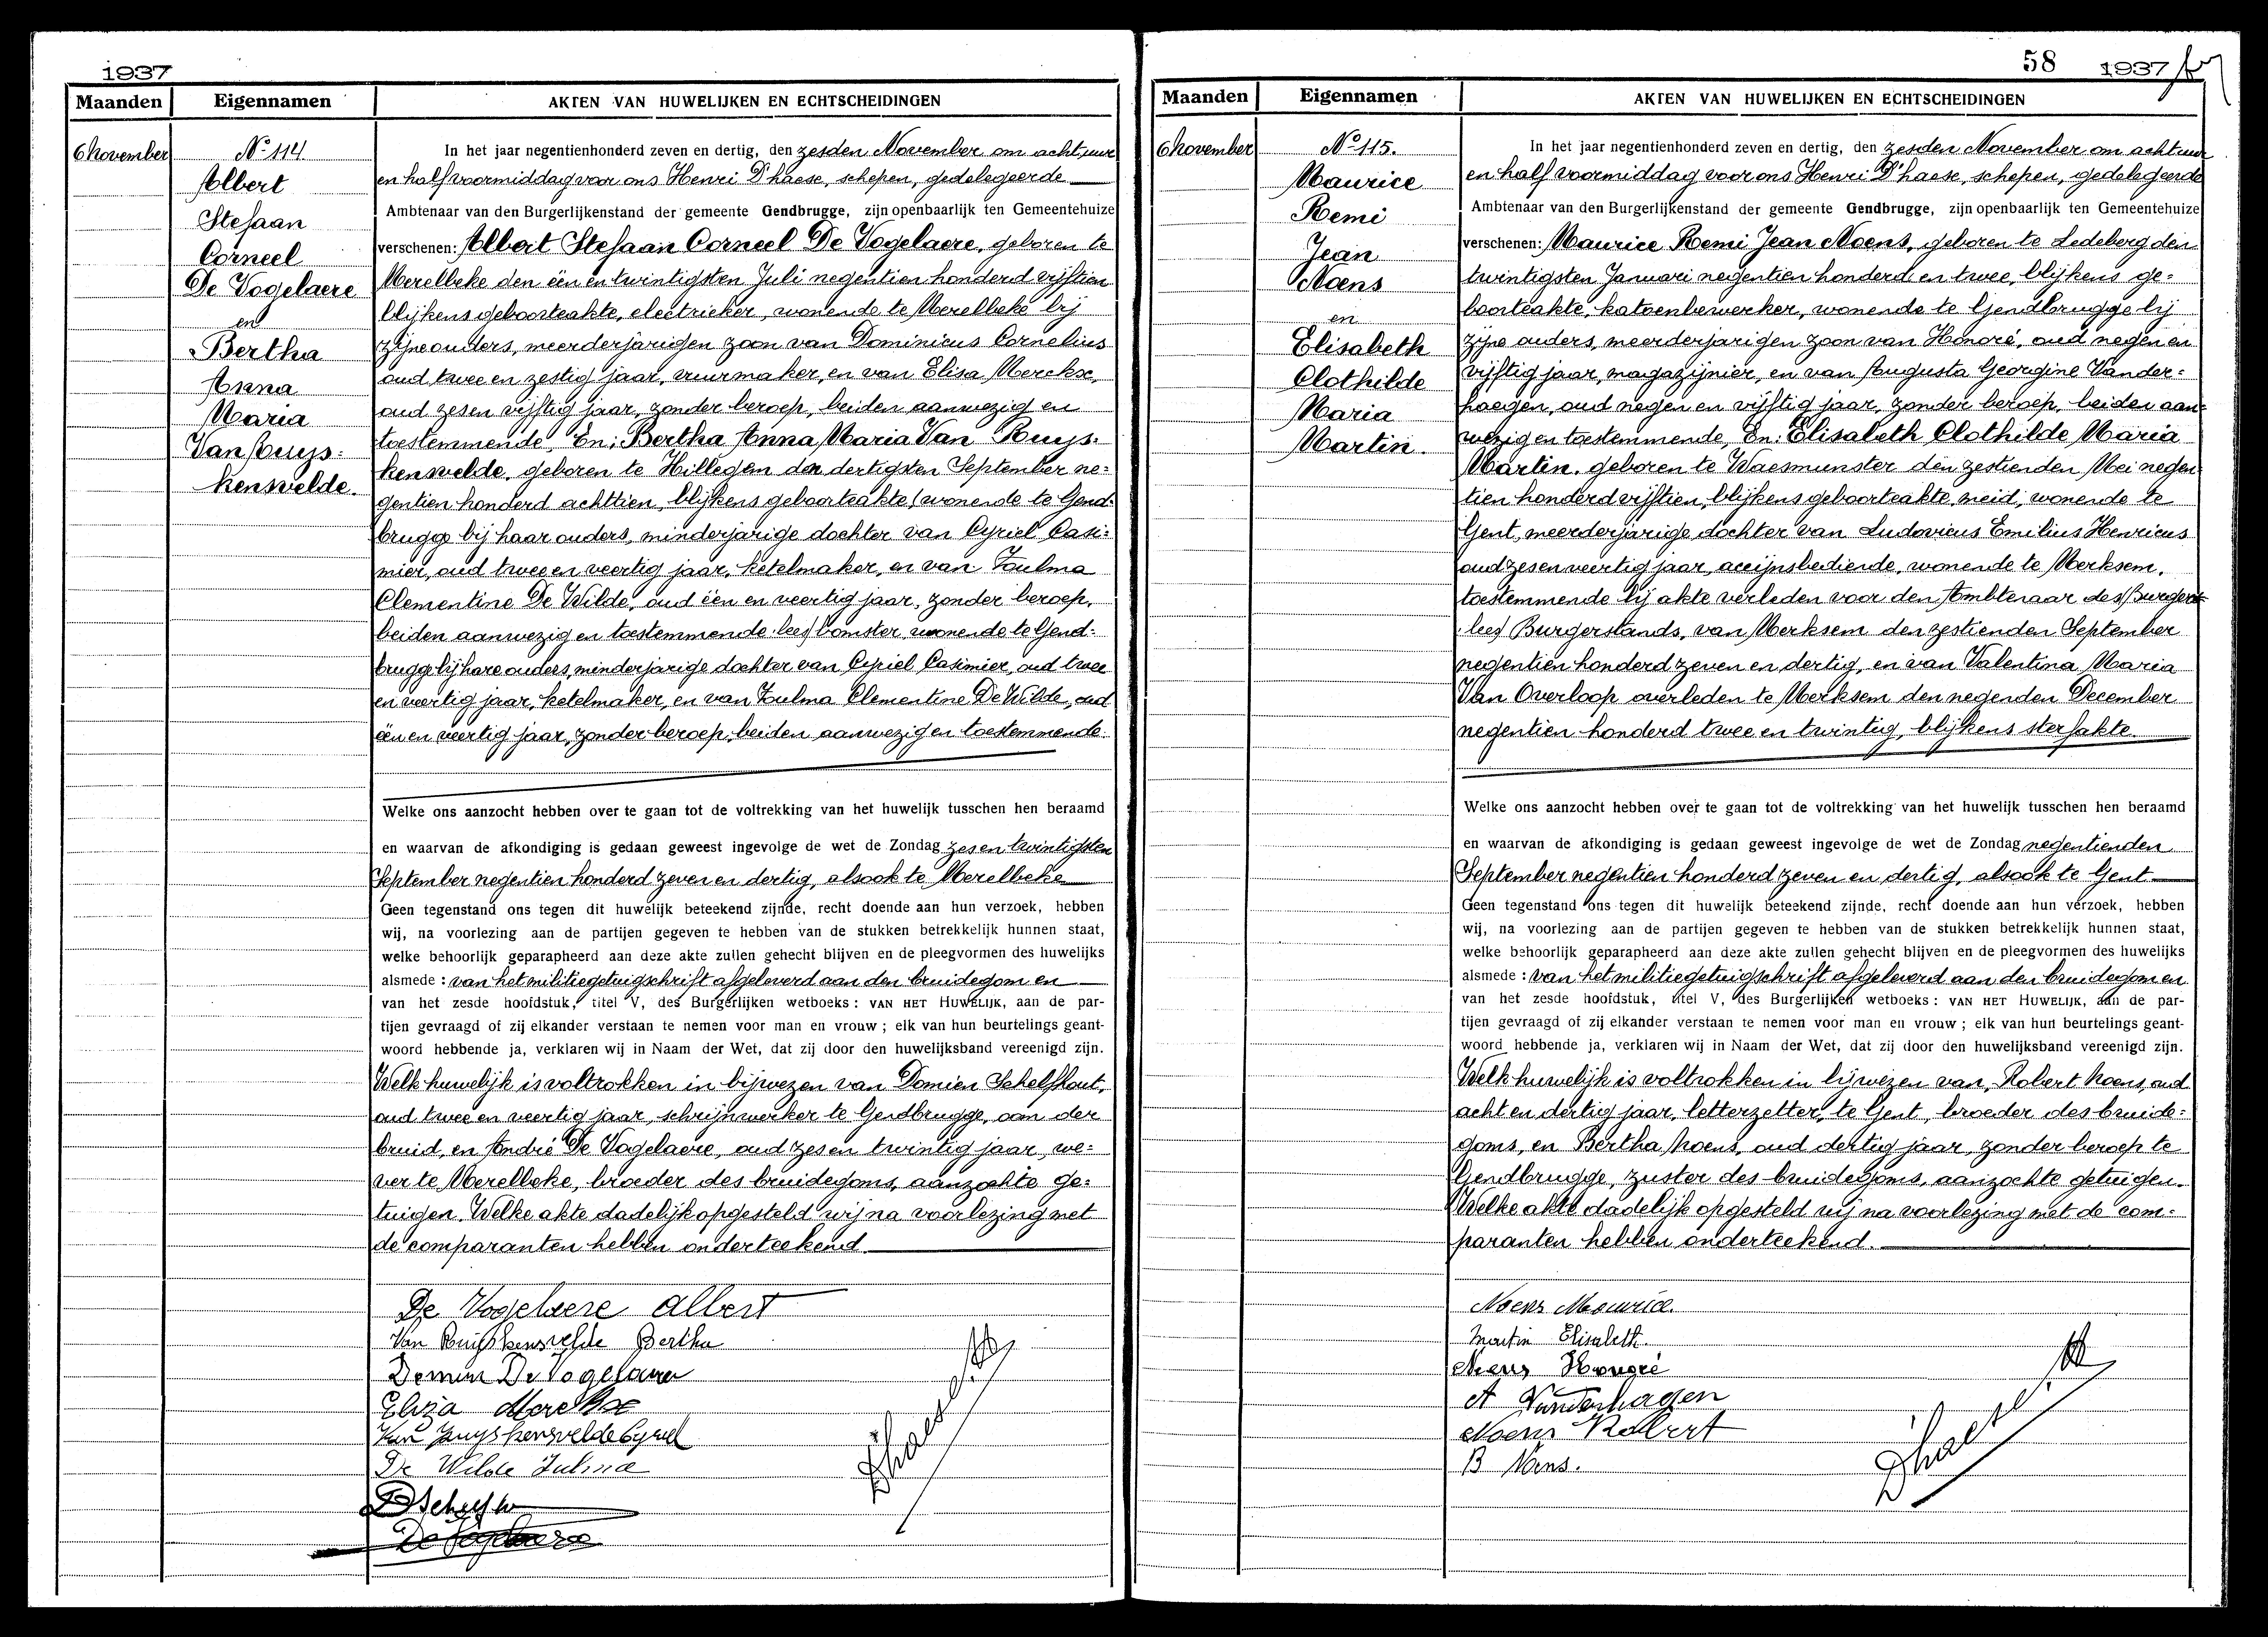 1937
Maanden Eigennamen AKTEN VAN HUWELIJKEN EN ECHTSCHEIDINGEN
6 November
No 114
Albert
Stefaan
Corneel
De Vogelaere
en
Bertha
Anna
Maria
Van Ruys=
kensvelde.
In het jaar negentienhonderd zeven en dertig, den zesden November om acht uur
en half voormiddag voor ons Henri D'haese, schepen, gedelegeerde
Ambtenaar van den Burgerlijkenstand der gemeente Gendbrugge, zijn openbaarlijk ten Gemeentehuize
verschenen: Albert Stefaan Corneel De Vogelaere, geboren te
Merelbeke den één en twintigsten Juli negentien honderd vijftien
blijkens geboorteakte, electrieker, wonende te Merelbeke bij
zijne ouders, meerderjarigen zoon van Dominicus Cornelius
oud twee en zestig jaar, vuurmaker, en van Elisa Merckx,
oud zesen vijftig jaar, zonder beroep, beiden aanwezig en
toestemmende. En: Bertha Anna Maria Van Ruys=
kensvelde, geboren te Hillegem den dertigsten September ne=
gentien honderd achttien, blijkens geboorteakte, (wonende te Gend=
brugge bij haar ouders, minderjarige dochter van Cyriel Casi=
mier, oud twee en veertig jaar, ketelmaker, en van Zulma
Clementine De Wilde, oud één en veertig jaar, zonder beroep,
beiden aanwezig en toestemmende lees) bomster, wonende te Gend=
brugge bij hare ouders, minderjarige dochter van Cyriel Casimier, oud twee
en veertig jaar, ketelmaker, en van Zulma Clementine De Wilde, oud
één en veertig jaar, zonder beroep, beiden aanwezig en toestemmende.
Welke ons aanzocht hebben over te gaan tot de voltrekking van het huwelijk tusschen hen beraamd
en waarvan de afkondiging is gedaan geweest ingevolge de wet de Zondag zes en twintigsten
September negentien honderd zeven en dertig, alsook te Merelbeke
Geen tegenstand ons tegen dit huwelijk beteekend zijnde, recht doende aan hun verzoek, hebben
wij, na voorlezing aan de partijen gegeven te hebben van de stukken betrekkelijk hunnen staat,
welke behoorlijk geparapheerd aan deze akte zullen gehecht blijven en de pleegvormen des huwelijks
alsmede: van het militiegetuigschrift afgeleverd aan den bruidegom en
van het zesde hoofdstuk, titel V, des Burgerlijken wetboeks: VAN HET HUWELIJK, aan de par-
tijen gevraagd of zij elkander verstaan te nemen voor man en vrouw; elk van hun beurtelings geant-
woord hebbende ja, verklaren wij in Naam der Wet, dat zij door den huwelijksband vereenigd zijn.
Welk huwelijk is voltrokken in bijwezen van Domien Schelfhout,
oud twee en veertig jaar, schrijnwerker te Gendbrugge, oom der
bruid, en André De Vogelaere, oud zes en twintig jaar, we=
ver te Merelbeke, broeder des bruidegoms, aanzochte ge=
tuigen. Welke akte dadelijk opgesteld wij na voorlezing met
de comparanten hebben onderteekend.
De Vogelaere Albert
Van Ruyskensvelde Bertha
Domien De Vogelaere
Eliza Merckx
Van Ruyskensvelde Cyriel
De Wilde Zulma
De Vogelaere
Dhaese
58 1937
Maanden Eigennamen AKTEN VAN HUWELIJKEN EN ECHTSCHEIDINGEN
6 November
No 115.
Maurice
Remi
Jean
Noens
en
Elisabeth
Clothilde
Maria
Martin.
In het jaar negentienhonderd zeven en dertig, den zesden November om acht uur
en half voormiddag voor ons Henri D'haese, schepen, gedelegeerde
Ambtenaar van den Burgerlijkenstand der gemeente Gendbrugge, zijn openbaarlijk ten Gemeentehuize
verschenen: Maurice Remi Jean Noens, geboren te Ledeberg den
twintigsten Januari negentien honderd en twee, blijkens ge=
boorteakte, katoenbewerker, wonende te Gendbrugge bij
zijne ouders, meerderjarigen zoon van Honoré, oud negen en
vijftig jaar, magazijnier, en van Augusta Georgine Vander=
haegen, oud negen en vijftig jaar, zonder beroep, beiden aan=
wezig en toestemmende, En: Elisabeth Clothilde Maria
Martin, geboren te Waesmunster den zestienden Mei negen
tien honderd vijftien, blijkens geboorteakte, meid, wonende te
Gent, meerderjarige dochter van Ludovicus Emilius Henricus
oud zes en veertig jaar, accijnsbediende, wonende te Merksem,
toestemmende bij akte verleden voor den Ambtenaar des (Burgers
lees) Burgerstands, van Merksem den zestienden September
negentien honderd zeven en dertig, en van Valentina Maria
Van Overloop overleden te Merksem den negenden December
negentien honderd twee en twintig, blijkens sterfakte.
Welke ons aanzocht hebben over te gaan tot de voltrekking van het huwelijk tusschen hen beraamd
en waarvan de afkondiging is gedaan geweest ingevolge de wet de Zondag negentienden
September negentien honderd zeven en dertig, alsook te Gent
Geen tegenstand ons tegen dit huwelijk beteekend zijnde, recht doende aan hun verzoek, hebben
wij, na voorlezing aan de partijen gegeven te hebben van de stukken betrekkelijk hunnen staat,
welke behoorlijk geparapheerd aan deze akte zullen gehecht blijven en de pleegvormen des huwelijks
alsmede: van het militiegetuigschrift afgeleverd aan den bruidegom en
van het zesde hoofdstuk, titel V, des Burgerlijken wetboeks: VAN HET HUWELIJK, aan de par-
tijen gevraagd of zij elkander verstaan te nemen voor man en vrouw; elk van hun beurtelings geant-
woord hebbende ja, verklaren wij in Naam der Wet, dat zij door den huwelijksband vereenigd zijn.
Welk huwelijk is voltrokken in bijwezen van, Robert Noens, oud
acht en dertig jaar, letterzetter, te Gent, broeder des bruide=
goms, en Bertha Noens, oud dertig jaar, zonder beroep te
Gendbrugge, zuster des bruidegoms, aanzochte getuigen.
Welke akte dadelijk opgesteld wij na voorlezing met de com=
paranten hebben onderteekend.
Noens Maurice.
Martin Elisabeth.
Noens Honoré
A Vanderhagen
Noens Robert
B Noens.
Dhaese